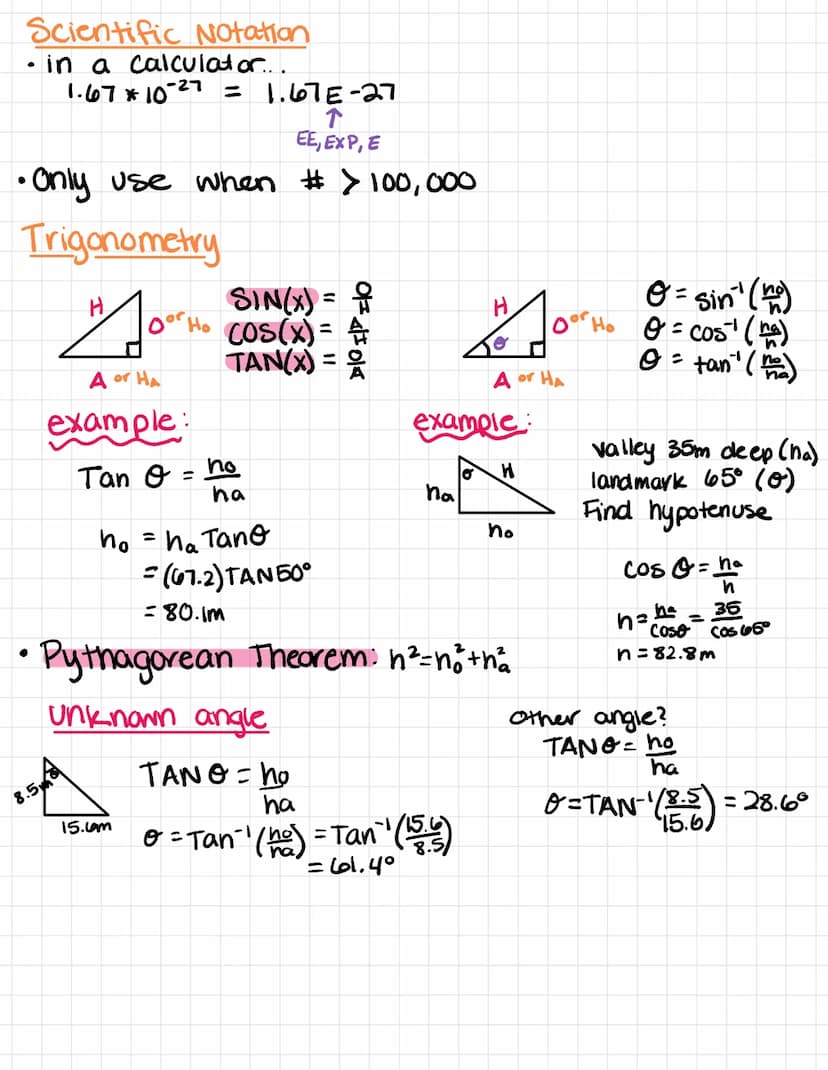 Scientific Notation
• in a calculator...
1.67 * 10⁻²⁷ = 1.67E-27
↑
EE, EXP, E
• Only use when # > 100,000
Trigonometry
H
O or Ho
A or HA
SIN(x) = O/H
COS(x) = A/H
TAN(x) = O/A
H
θ
O or Ho
A or HA
θ = sin⁻¹(ho/h)
θ = cos⁻¹(ha/h)
θ = tan⁻¹(ho/ha)
example:
Tan θ = ho/ha
ho = ha Tanθ
= (67.2)TAN50°
= 80.1m
example:
θ
H
ha
ho
valley 35m deep (ha)
landmark 65° (θ)
Find hypotenuse
cos θ = ha/h
h = ha/cosθ = 35/cos65°
h = 82.8m
• Pythagorean Theorem: h² = ho² + ha²
Unknown angle
θ
8.5m
15.6m
TAN θ = ho/ha
θ = Tan⁻¹(ho/ha) = Tan⁻¹(15.6/8.5)
= 61.4°
Other angle?
TAN θ = ho/ha
θ = TAN⁻¹(8.5/15.6) = 28.6°